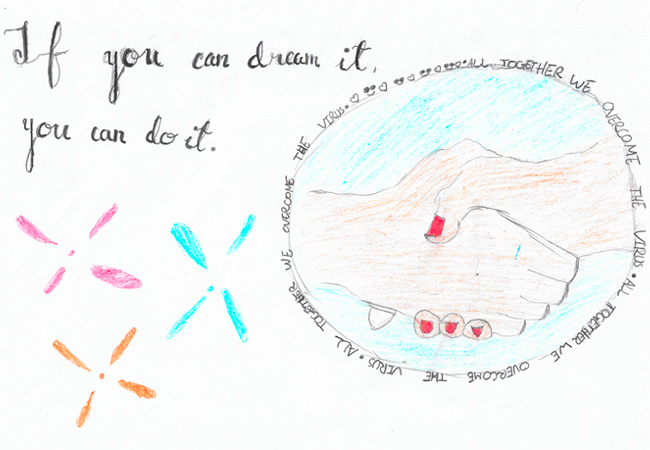 If you can dream it,
you can do it.
ALL TOGETHER WE OVERCOME THE VIRUS • ALL TOGETHER WE OVERCOME THE VIRUS • ALL TOGETHER WE OVERCOME THE VIRUS •